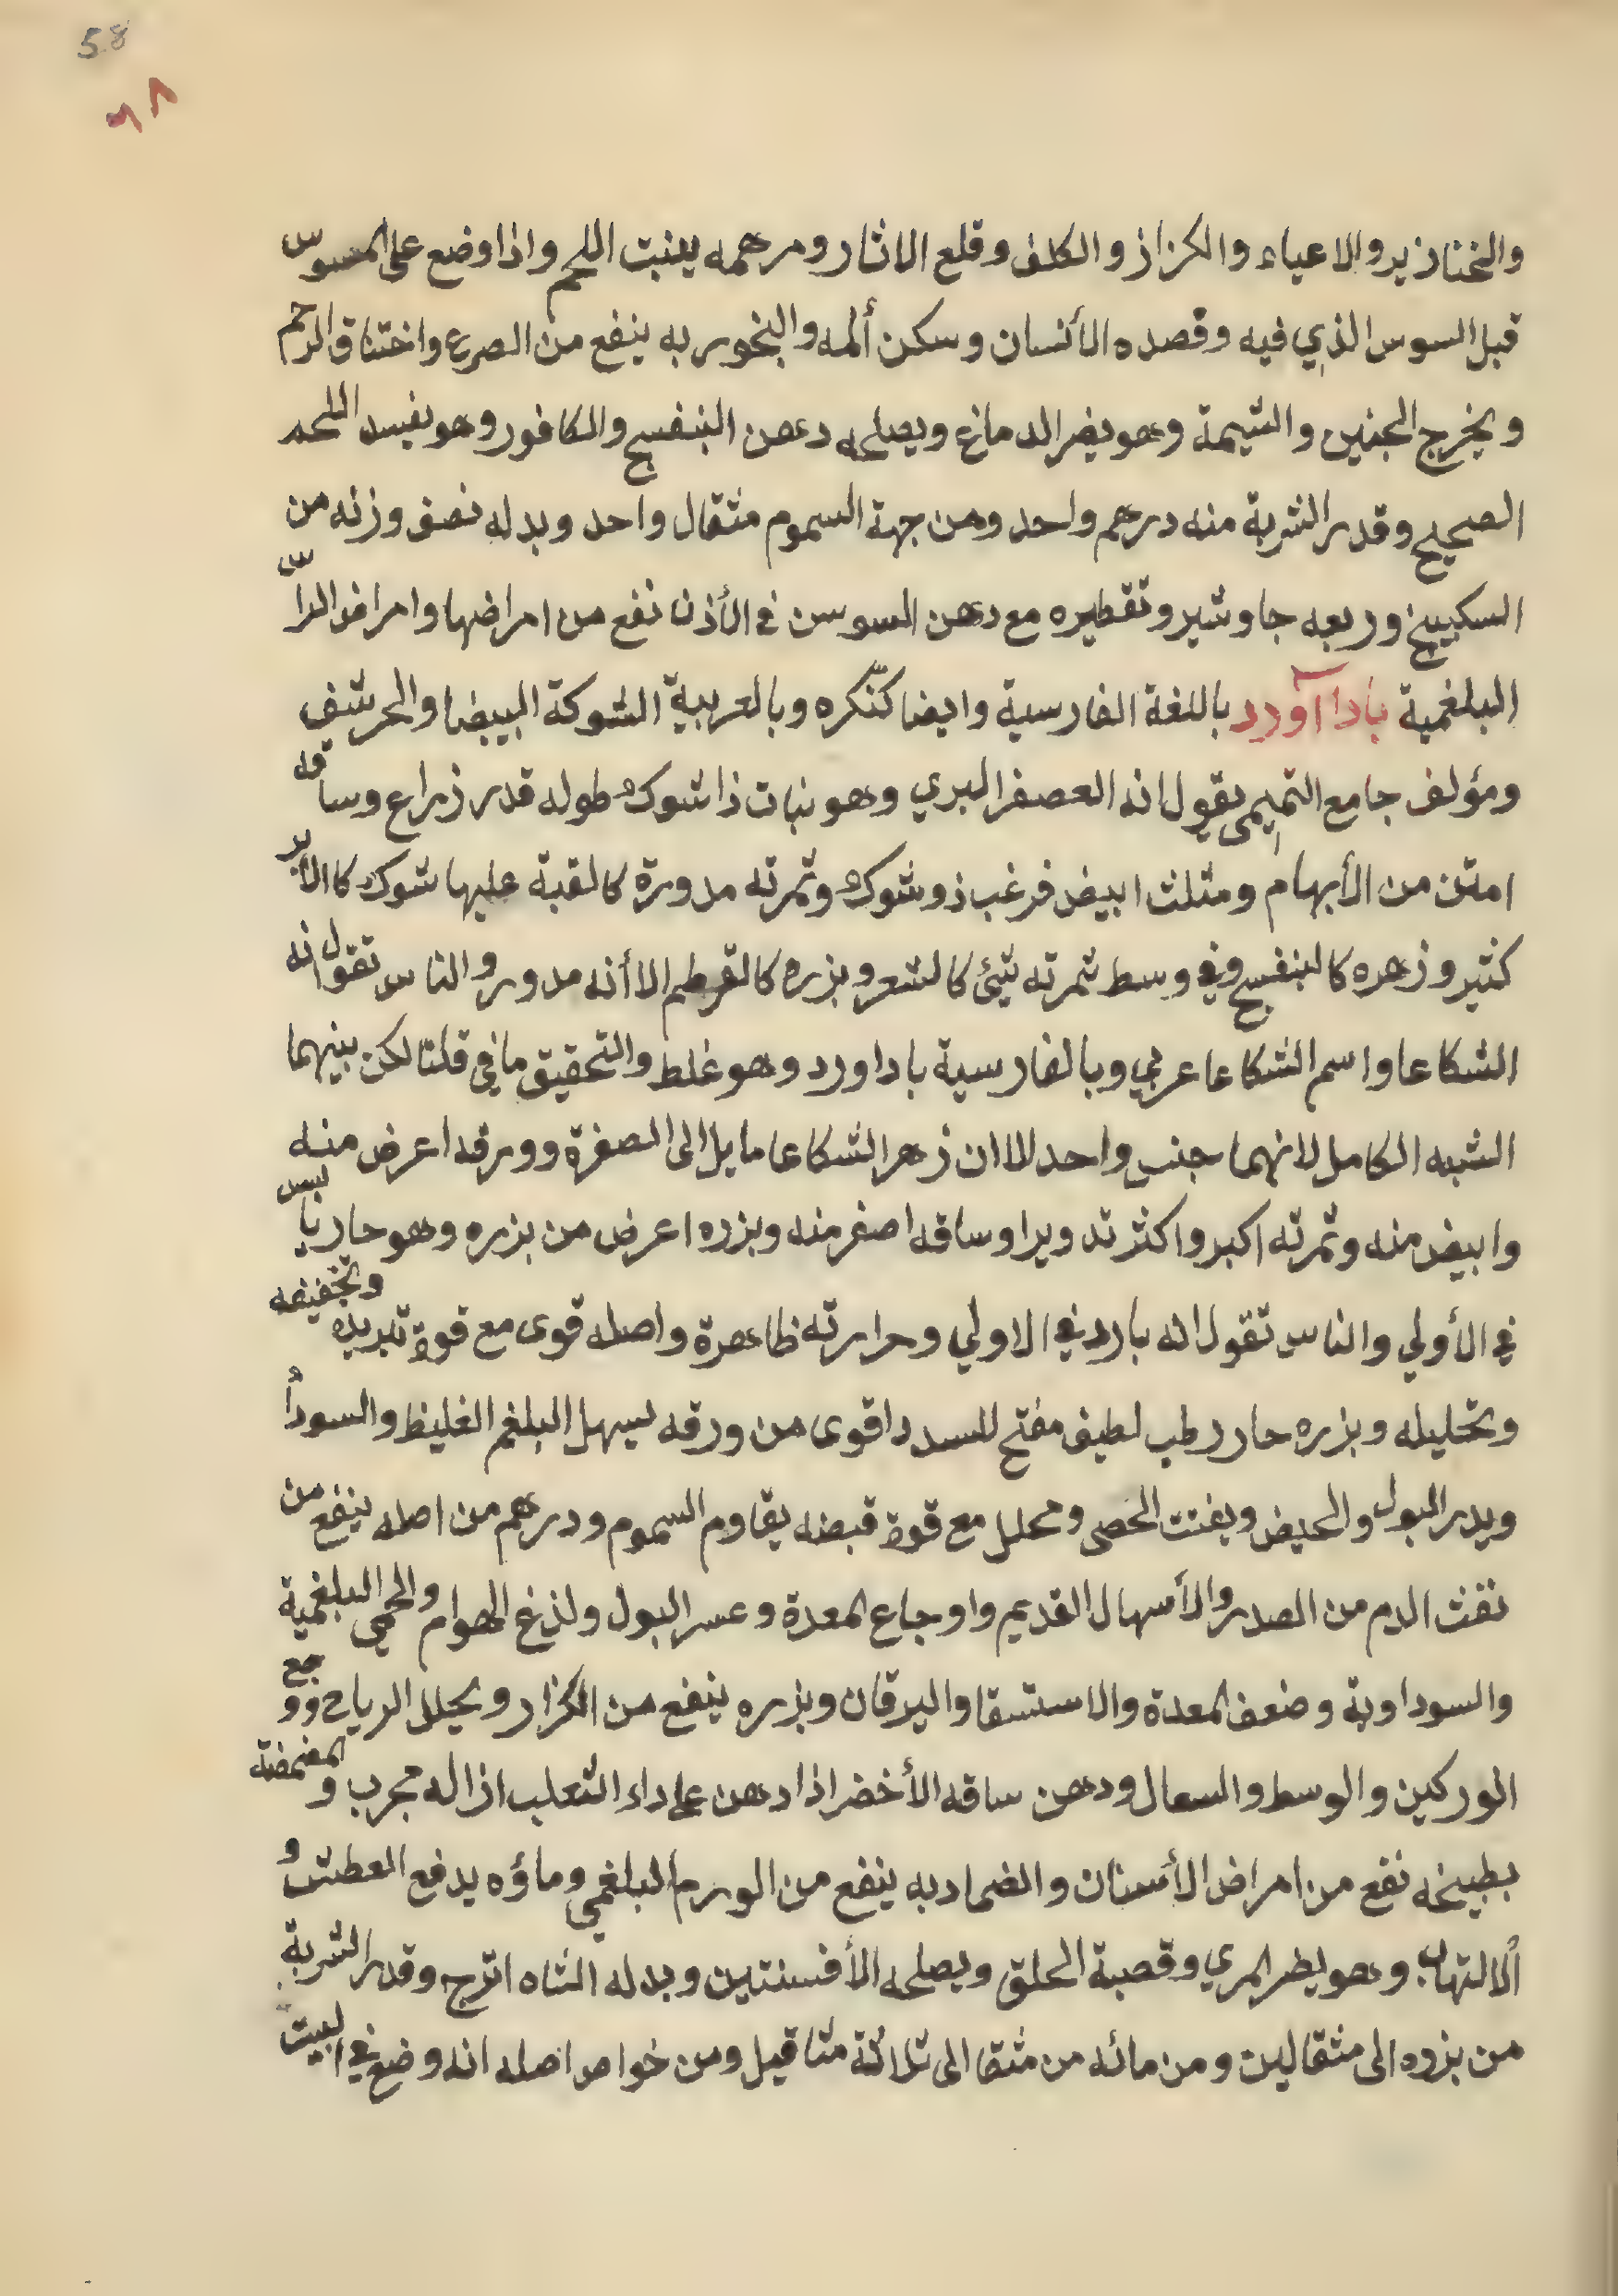 58
٦٨
والخنازير والاعياء والكزاز والكلف وقلع الاثار ومرهمه ينبت اللحم واذا وضع على المسوس
قبل السوس الذي فيه وقصده الأنسان وسكن ألمه والبخور به ينفع من الصرع واختناق الرحم
ويخرج الجنين والشيمة وهو يضر الدماغ ويصلحه دهن البنفسج والكافور وهو يفسد اللحم
الصحيح وقدر الشربة منه درهم واحد ومن جهة السموم مثقال واحد وبدله نصف وزنه من
السكبينج وربعه جاوشير وتقطيره مع دهن السوسن في الأذن نفع من امراضها وامراض الراس
البلغمية بادا آورد باللغة الفارسية وايضا كنكره وبالعربية الشوكة البيضا والحرشف
ومؤلف جامع التميمي يقول انه العصفر البري وهو نبات ذا شوك طوله قدر ذراع وساقه
امتن من الأبهام ومثلث ابيض فرغب ذو شوك وثمرته مدورة كالقبة عليها شوك كالأبر
كثير وزهره كالبنفسج وفي وسط ثمرته شئ كالشعر وبزره كالقرطم الا أنه مدور والناس تقول انه
الشكاعا واسم الشكاعا عربي وبالفارسية باداورد وهو غلط والتحقيق ما في قلنا لكن بينهما
الشبه الكامل لانهما جنس واحد الا ان زهر الشكاعا مايل الى الصفرة وورقه اعرض منه
وابيض منه وثمرته اكبر واكثر تدويرا وساقه اصفر منه وبزره اعرض من بزره وهو حار يابس
في الأولي والناس تقول انه بارد في الاولي وحرارته ظاهرة واصله قوى مع قوة تبريده وتجفيفه
وتحليله وبزره حار رطب لطيف مفتح للسدد اقوى من ورقه ليسهل البلغم الغليظ والسودأ
ويدر البول والحيض ويفتت الحصى ومحلل مع قوة قبضه يقاوم السموم ودرهم من اصله ينفع من
نفث الدم من الصدر والأسهال القديم واوجاع المعدة وعسر البول ولذغ الهوام والحمى البلغمية
والسوداوية وضعف المعدة والاستسقا واليرقان وبزره ينفع من الكزاز ويحلل الرياح ووجع
الوركين والوسط والسعال ودهن ساقه الأخضر اذا دهن على داء الثعلب ازاله مجرب والمضمضة
بطبيخه نفع من امراض الأسنان والضماد به ينفع من الورم البلغمي وماؤه يدفع العطش و
ألالتهاب وهو يضر المري وقصبة الحلق ويصلحه الأفسنتين وبدله الشاه اترج وقدر الشربة
من بزره الى مثقالين ومن مائه من مثقا الى ثلاثة مثاقيل ومن خواص اصله انه وضع في البيت